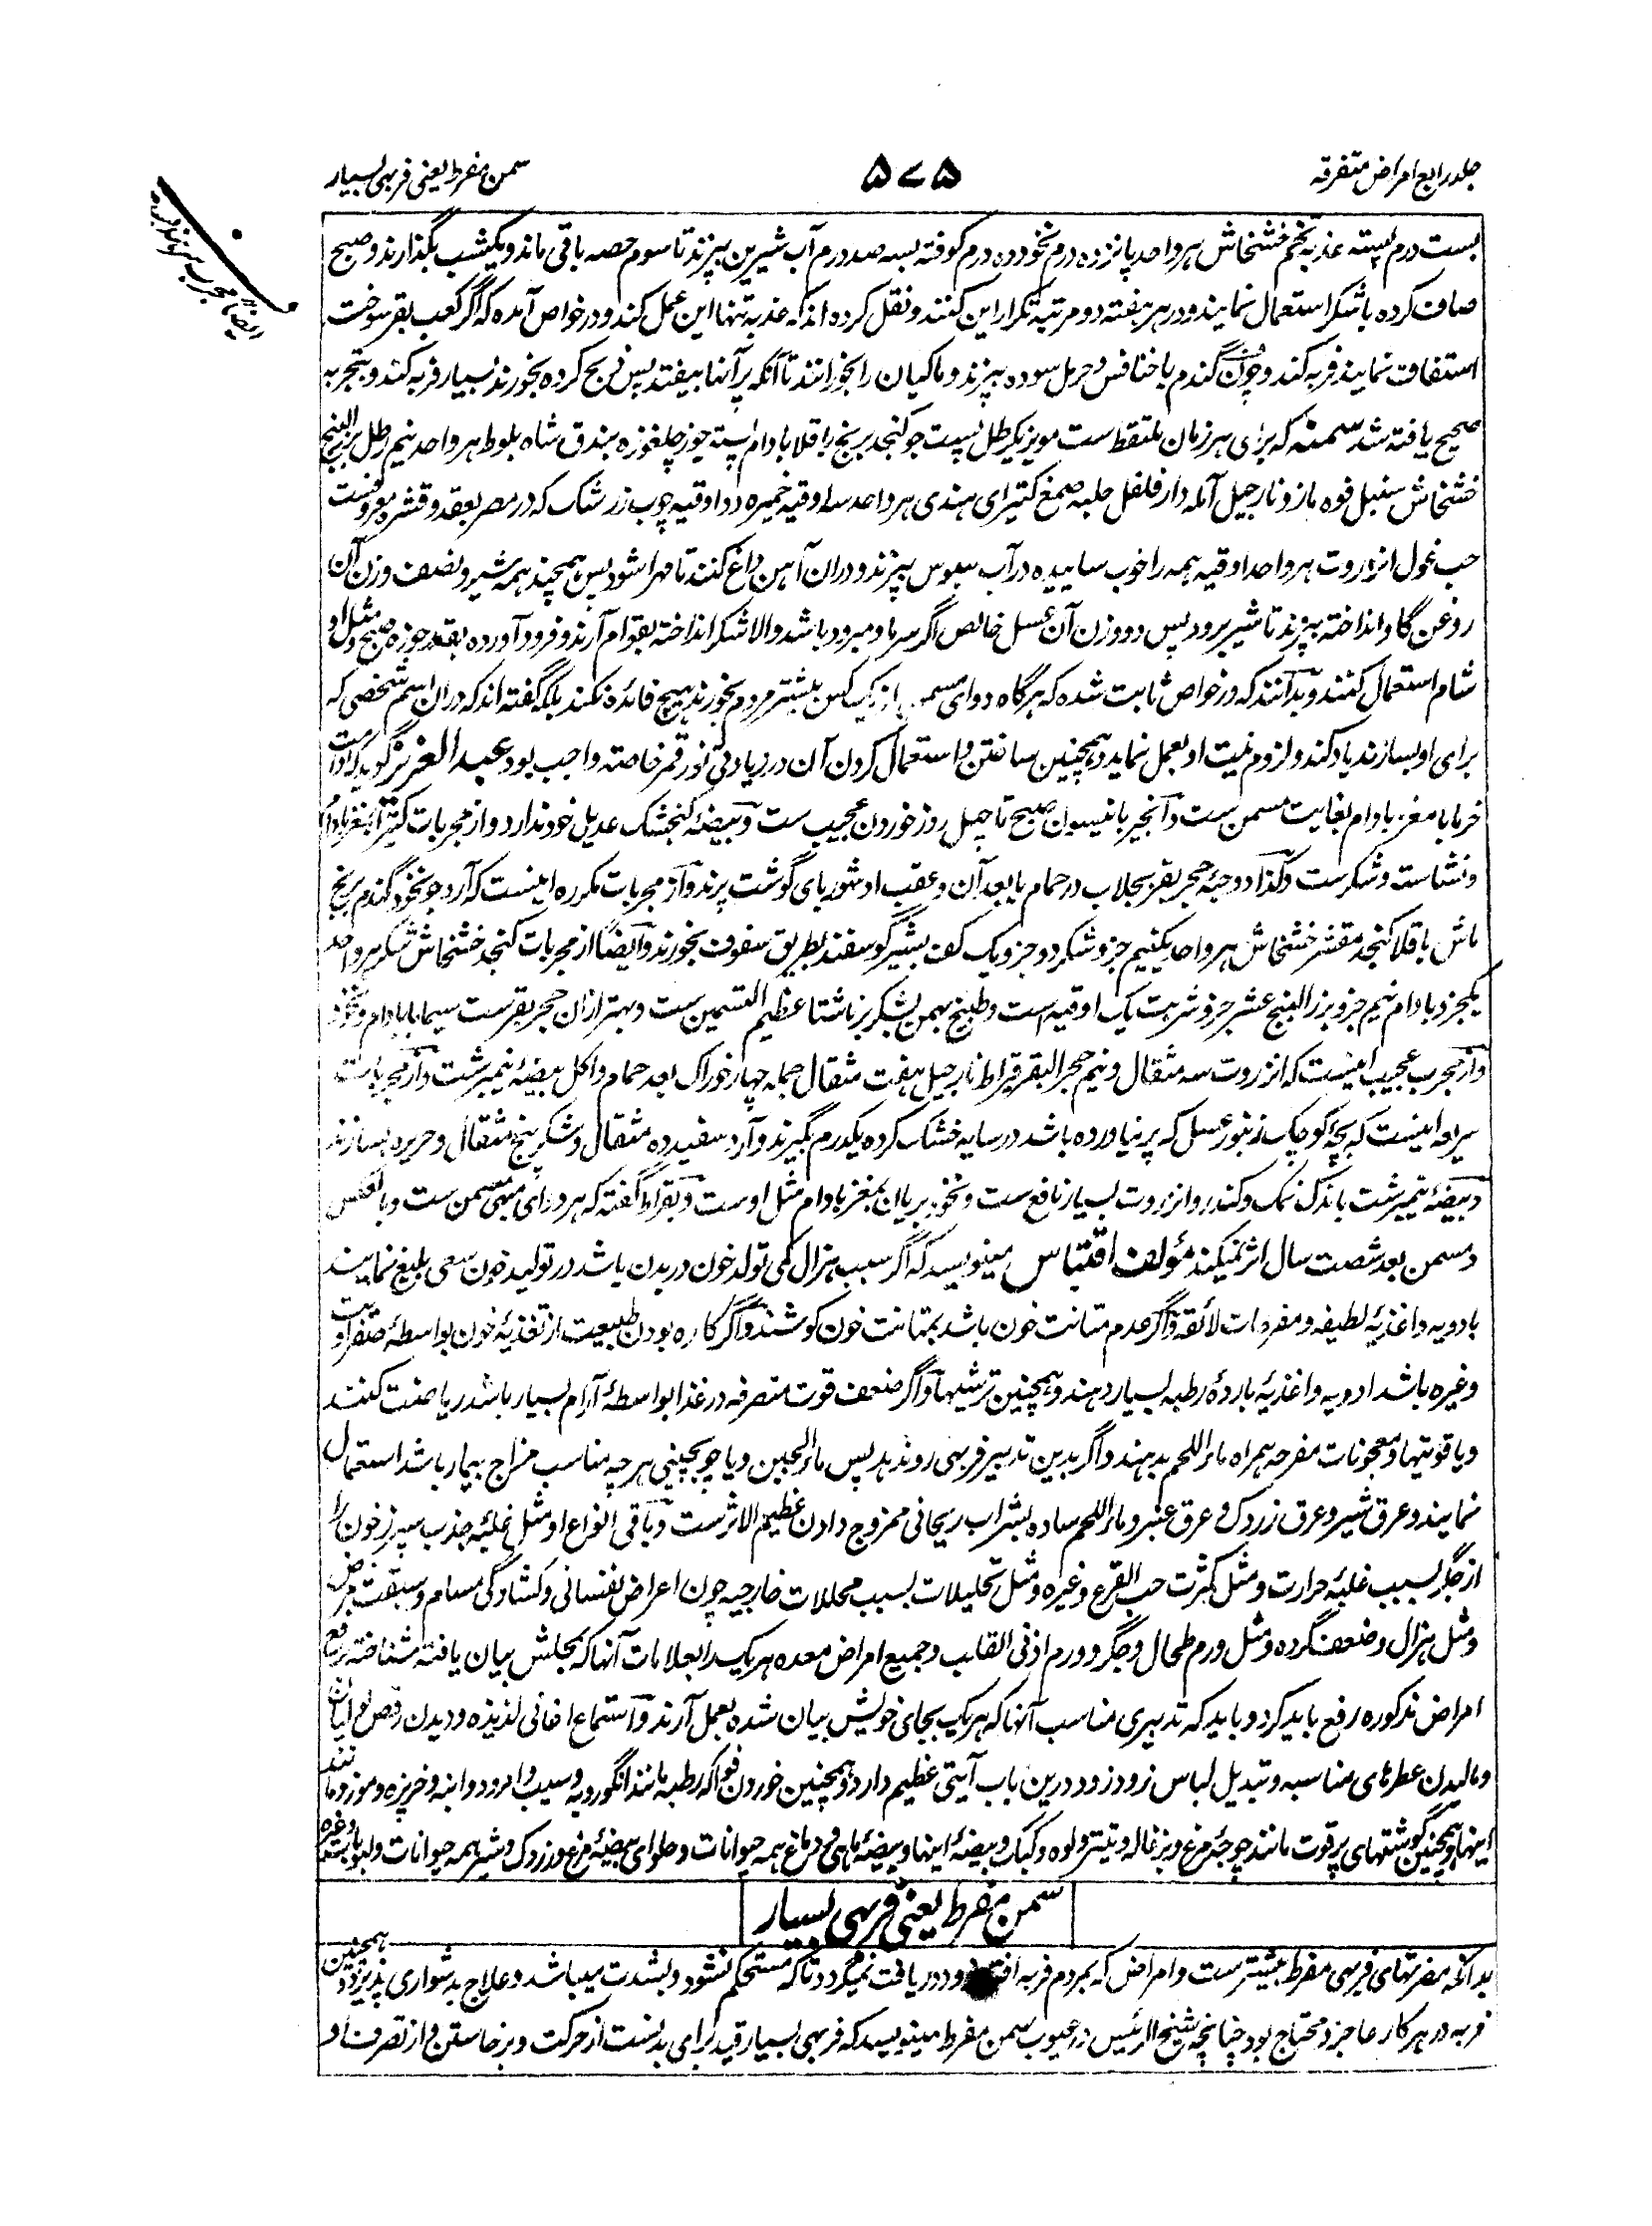 جلد رابع امراض متفرقه
۵۷۵
سمن مفرط یعنی فربهی بسیار
بست درم پسته عذبه تخم خشخاش هر واحد پانزده درم نخود ده درم کوفته بسه صد درم آب شیرین بپزند تا سوم حصه باقی ماند و یکشب بگذارند و صبح
صاف کرده باشکر استعمال نمایند و در هر هفته دو مرتبه تکرار این کنند و نقل کرده اند که عذبه تنها این عمل کند و در خواص آمده که اگر کعب بقر سوخته
استفاف نمایند فربه کند و چون گندم با خنافس و حرمل سوده بپزند و ماکیان را بخورانند تا آنکه پر آنها بیفتد پس ذبح کرده بخورند بسیار فربه کند و بتجربه
صحیح یافته شد سمنه که برای هر زمان ملتقط ست مویز یکرطل بسیت جو کنجد برنج باقلا بادام پسته جوز چلغوزه بندق شاه بلوط هر واحد نیم رطل بزر البنج
خشخاش سنبل فوه مازو نارجیل آمله دارفلفل حلبه صمغ کتیرای هندی هر واحد سه اوقیه خمیره دو اوقیه چوب زرشک که در مصر بعقده قشره معروفست
حب غول انزروت هر واحد اوقیه همه را خوب ساییده در آب سبوس بپزند و دران آهن داغ کنند تا مهرا شود پس همچند همه شیر و نصف وزن آن
روغن گاو انداخته بپزند تا شیر برود پس دو وزن آن عسل خالص اگر سرما و مبرود باشد والا شکر انداخته بقوام آرند و فرود آورده بقدر جوزه صبح و مثل او
شام استعمال کنند و بدانند که در خواص ثابت شده که هرگاه دوای مسمن از یک کس بیشتر مردم بخورند هیچ فائده نکند بلکه گفته اند که دران اسم شخصی که
برای او بسازند یاد کند و لزوم نیت او بعمل نماید و همچنین ساختن و استعمال کردن آن در زیادتی نور قمر خاصته واجب بود عبد العزیز گوید که مداومت
خرما با مغز بادام بغایت مسمن ست و انجیر با نیسون صبح تا چهل روز خوردن عجیب ست و بیضۀ کنجشک عدیل خود ندارد و از مجربات کتیرا مغز بادام
و نشاسته و شکرست و کذا دو حبه حجر بقر بجلاب در حمام یا بعد آن و عقب او شوربای گوشت پرند و از مجربات مکرره اینست که آرد جو نخود گندم برنج
ماش باقلا کنجد مقشر خشخاش هر واحد یکنیم جزو شکر دو جزو یک کف بشیر گوسفند بطریق سفوف بخورند و ایضاً از مجربات کنجد خشخاش شکر هر واحد
یکجزو بادام نیم جزو بزر البنج عشر جزو شربت یک اوقیه است و طبیخ بهمن بشکر بر ناشتا عظیم التسمین ست و بهتر ازان حجر بقرست سیما با بادام و نخود
و از مجرب عجیب اینست که انزروت سه مثقال و نیم حجر البقر قیراط نارجیل هفت مثقال جمله چهار خوراک بعد حمام و اکل بیضۀ نیمبرشت و از مجربات
سریعه اینست که بچۀ کوچک زنبور عسل که پر نیاورده باشد در سایه خشک کرده یکدرم بگیرند و آرد سفید ده مثقال و شکر پنج مثقال و حریره بسازند
و بیضۀ نیمبرشت باندک نمک و کندر و انزروت بسیار نافع ست و نخود بریان بمغز بادام مثل اوست و بقراط گفته که هر دوای مبهی مسمن ست و بالعکس
و مسمن بعد شصت سال اثر نمیکند مؤلف اقتباس مینویسد که اگر سبب هزال کمی تولد خون در بدن باشد در تولید خون سعی بلیغ نمایند
بادویه و اغذیۀ لطیفه و مفردات لائقه و اگر عدم متانت خون باشد بمتانت خون کوشند و اگر کاره بودن طبیعت از تغذیۀ خون بواسطۀ صفراویت
و غیره باشد ادویه و اغذیۀ باردۀ رطبه بسیار دهند و همچنین ترشیها و اگر ضعف قوت متصرفه در غذا بواسطۀ آرام بسیار باشد ریاضت کنند
و یاقوتیها و معجونات مفرحه همراه ماء اللحم بدهند و اگر بدین تدبیر فربهی رو ندهد پس ماء الجبن و یا چوبچینی هرچه مناسب مزاج بیمار باشد استعمال
نمایند و عرق شیر و عرق زردک و عرق عنبر و ماء اللحم ساده بشراب ریحانی ممزوج دادن عظیم الاثرست و باقی انواع او مثل غلبۀ جذب سپرز خون را
از جگر بسبب غلبۀ حرارت و مثل کثرت حب القرع و غیره و مثل تحلیلات بسبب محللات خارجیه چون اعراض نفسانی و کشادگی مسام و سبقت مرض
و مثل هزال و ضعف گرده و مثل ورم طحال و جگر و ورم اذنی القلب و جمیع امراض معده هر یک را بعلامات آنها که بجلش بیان یافته شناخته رفع
امراض مذکوره رفع باید کرد و باید که تدبیری مناسب آنها که هر یک بجای خویش بیان شده بعمل آرند و استماع اغانی لذیذه و دیدن رقص لولیان
و مالیدن عطرهای مناسبه و تبدیل لباس زود زود درین باب آیتی عظیم دارد و همچنین خوردن فواکه رطبه مانند انگور و به و سیب و امرود و انبه و خرپزه و موز و مانند
اینها و همچنین گوشتهای پرقوت مانند چوجۀ مرغ و بزغاله و تیتر و لوه و کبک و بیضۀ اینها و بیضۀ ماهی و دماغ همه حیوانات و حلوای بیضۀ مرغ و زردک و شیر همه حیوانات و لبوبات و غیره
سمن مفرط یعنی فربهی بسیار
بدانکه مضرتهای فربهی مفرط بیشترست و امراض که بمردم فربه افتد زود دریافت نمیگردد تا که مستحکم نشود و بشدت میباشد و علاج بدشواری پذیرد و همچنین
فربه در هر کار عاجز و محتاج بود چنانچه شیخ الرئیس در عیوب سمن مفرط مینویسد که فربهی بسیار قید برای بدنست از حرکت و برخاستن و از تصرف او